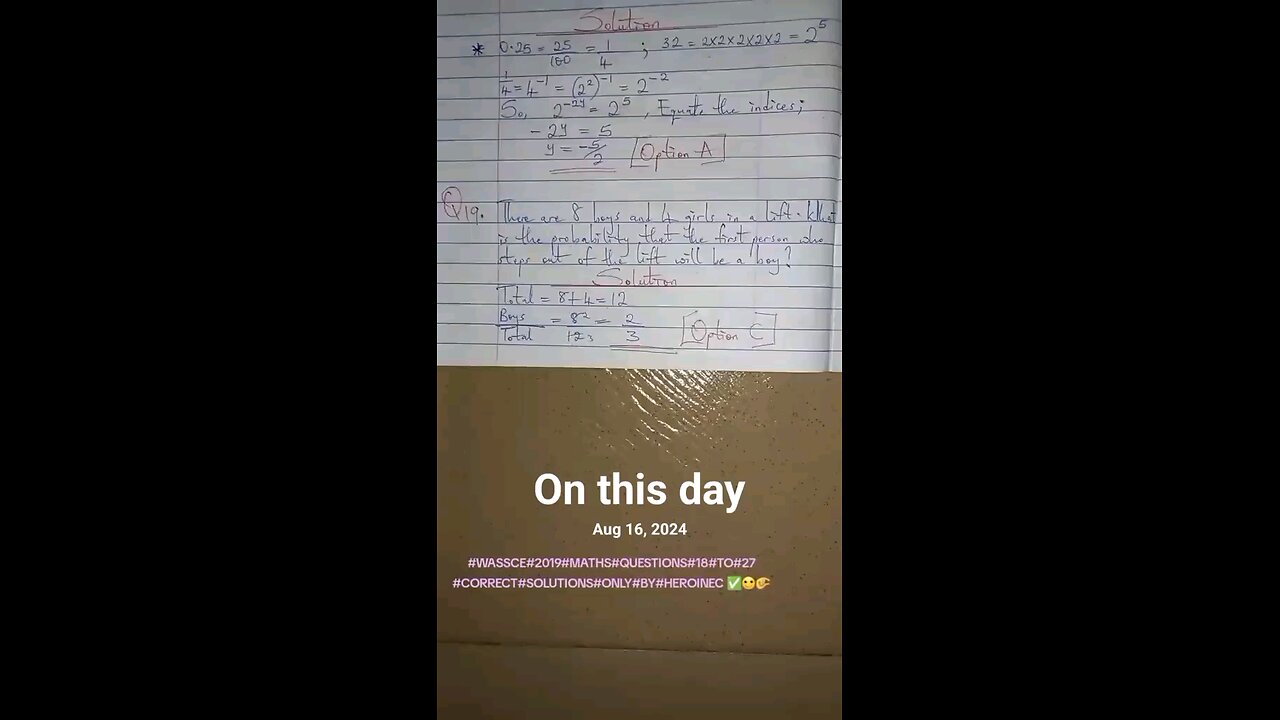 Solution
* 0.25 = 25/100 = 1/4 ; 32 = 2x2x2x2x2 = 2⁵
1/4 = 4⁻¹ = (2²)⁻¹ = 2⁻²
So, 2⁻²ʸ = 2⁵, Equate the indices;
- 2y = 5
y = -5/2 [Option A]
Q19. There are 8 boys and 4 girls in a lift. What
is the probability that the first person who
steps out of the lift will be a boy?
Solution
Total = 8+4=12
Boys/Total = 8²/12₃ = 2/3 [Option C]
On this day
Aug 16, 2024
#WASSCE#2019#MATHS#QUESTIONS#18#TO#27
#CORRECT#SOLUTIONS#ONLY#BY#HEROINEC ✅🙂🤏